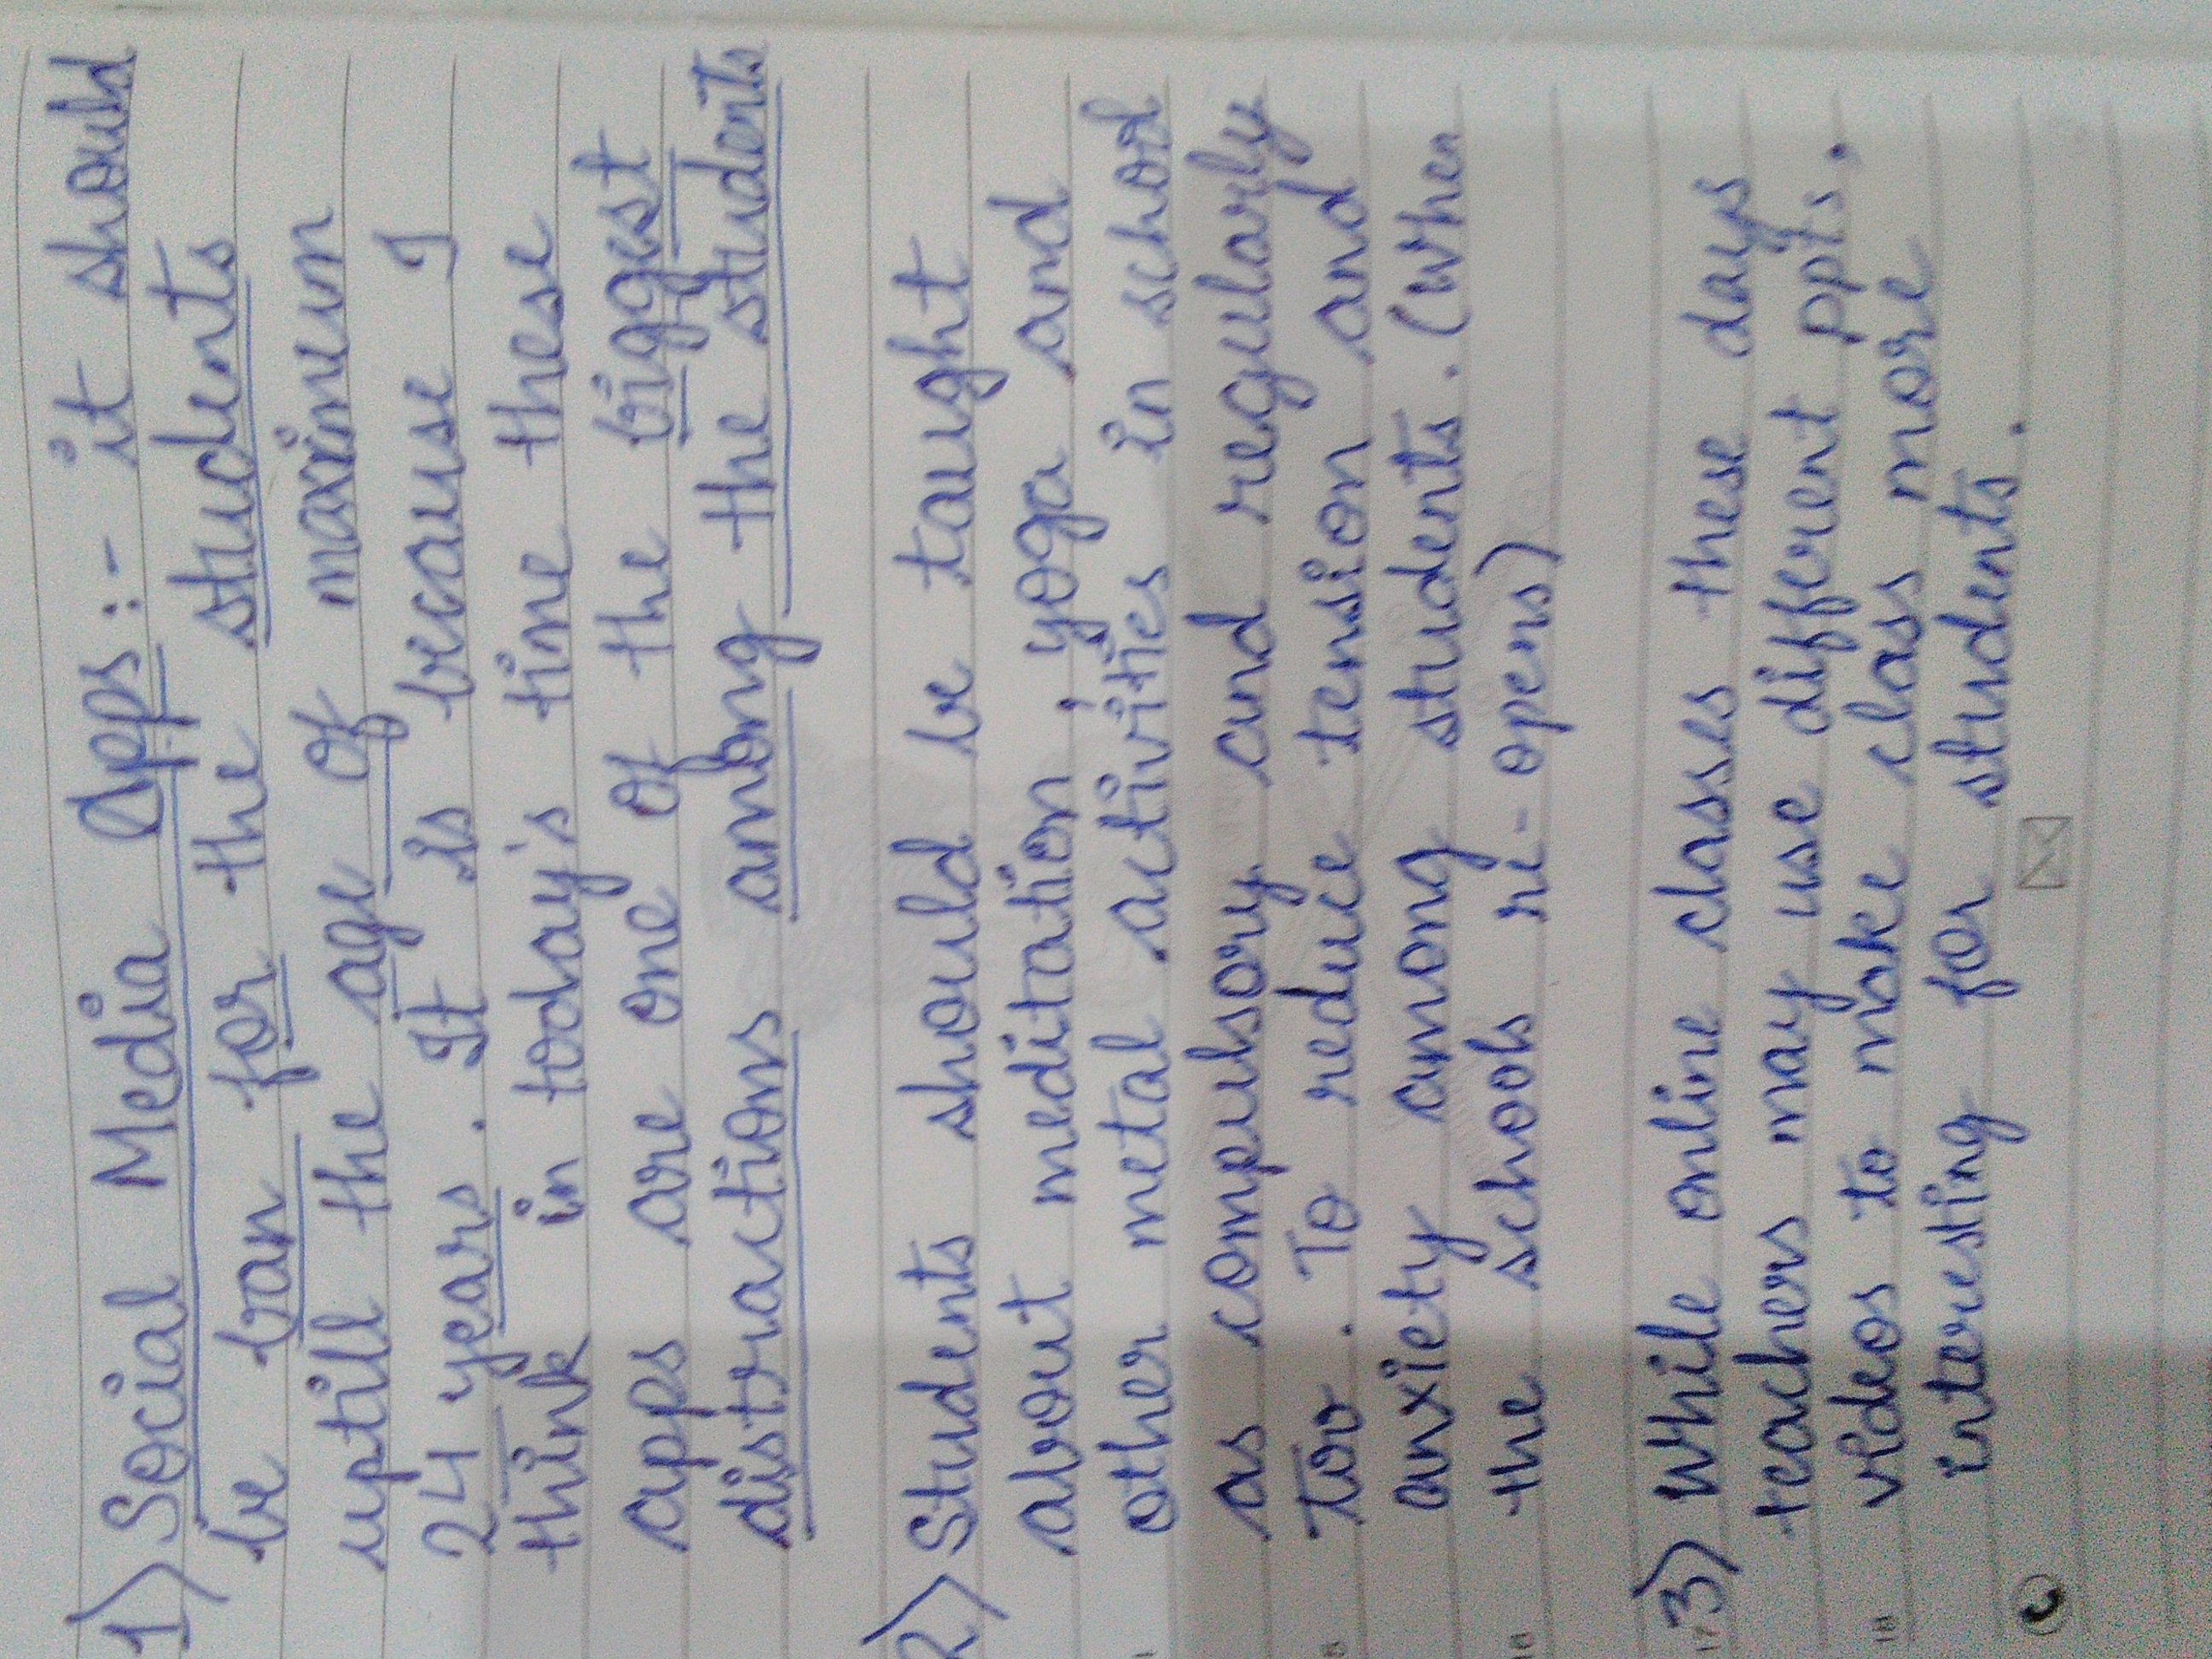 1) Social Media Apps :- it should
be ban for the students
uptill the age of maximum
24 years. It is because I
think in today's time these
apps are one of the biggest
distractions among the students
2) Students should be taught
about meditation, yoga and
other metal activities in school
as compulsory and regularly
too. To reduce tension and
anxiety among students. (When
the schools re-opens)
3) While online classes these days
teachers may use different ppts,
videos to make class more
interesting for students.